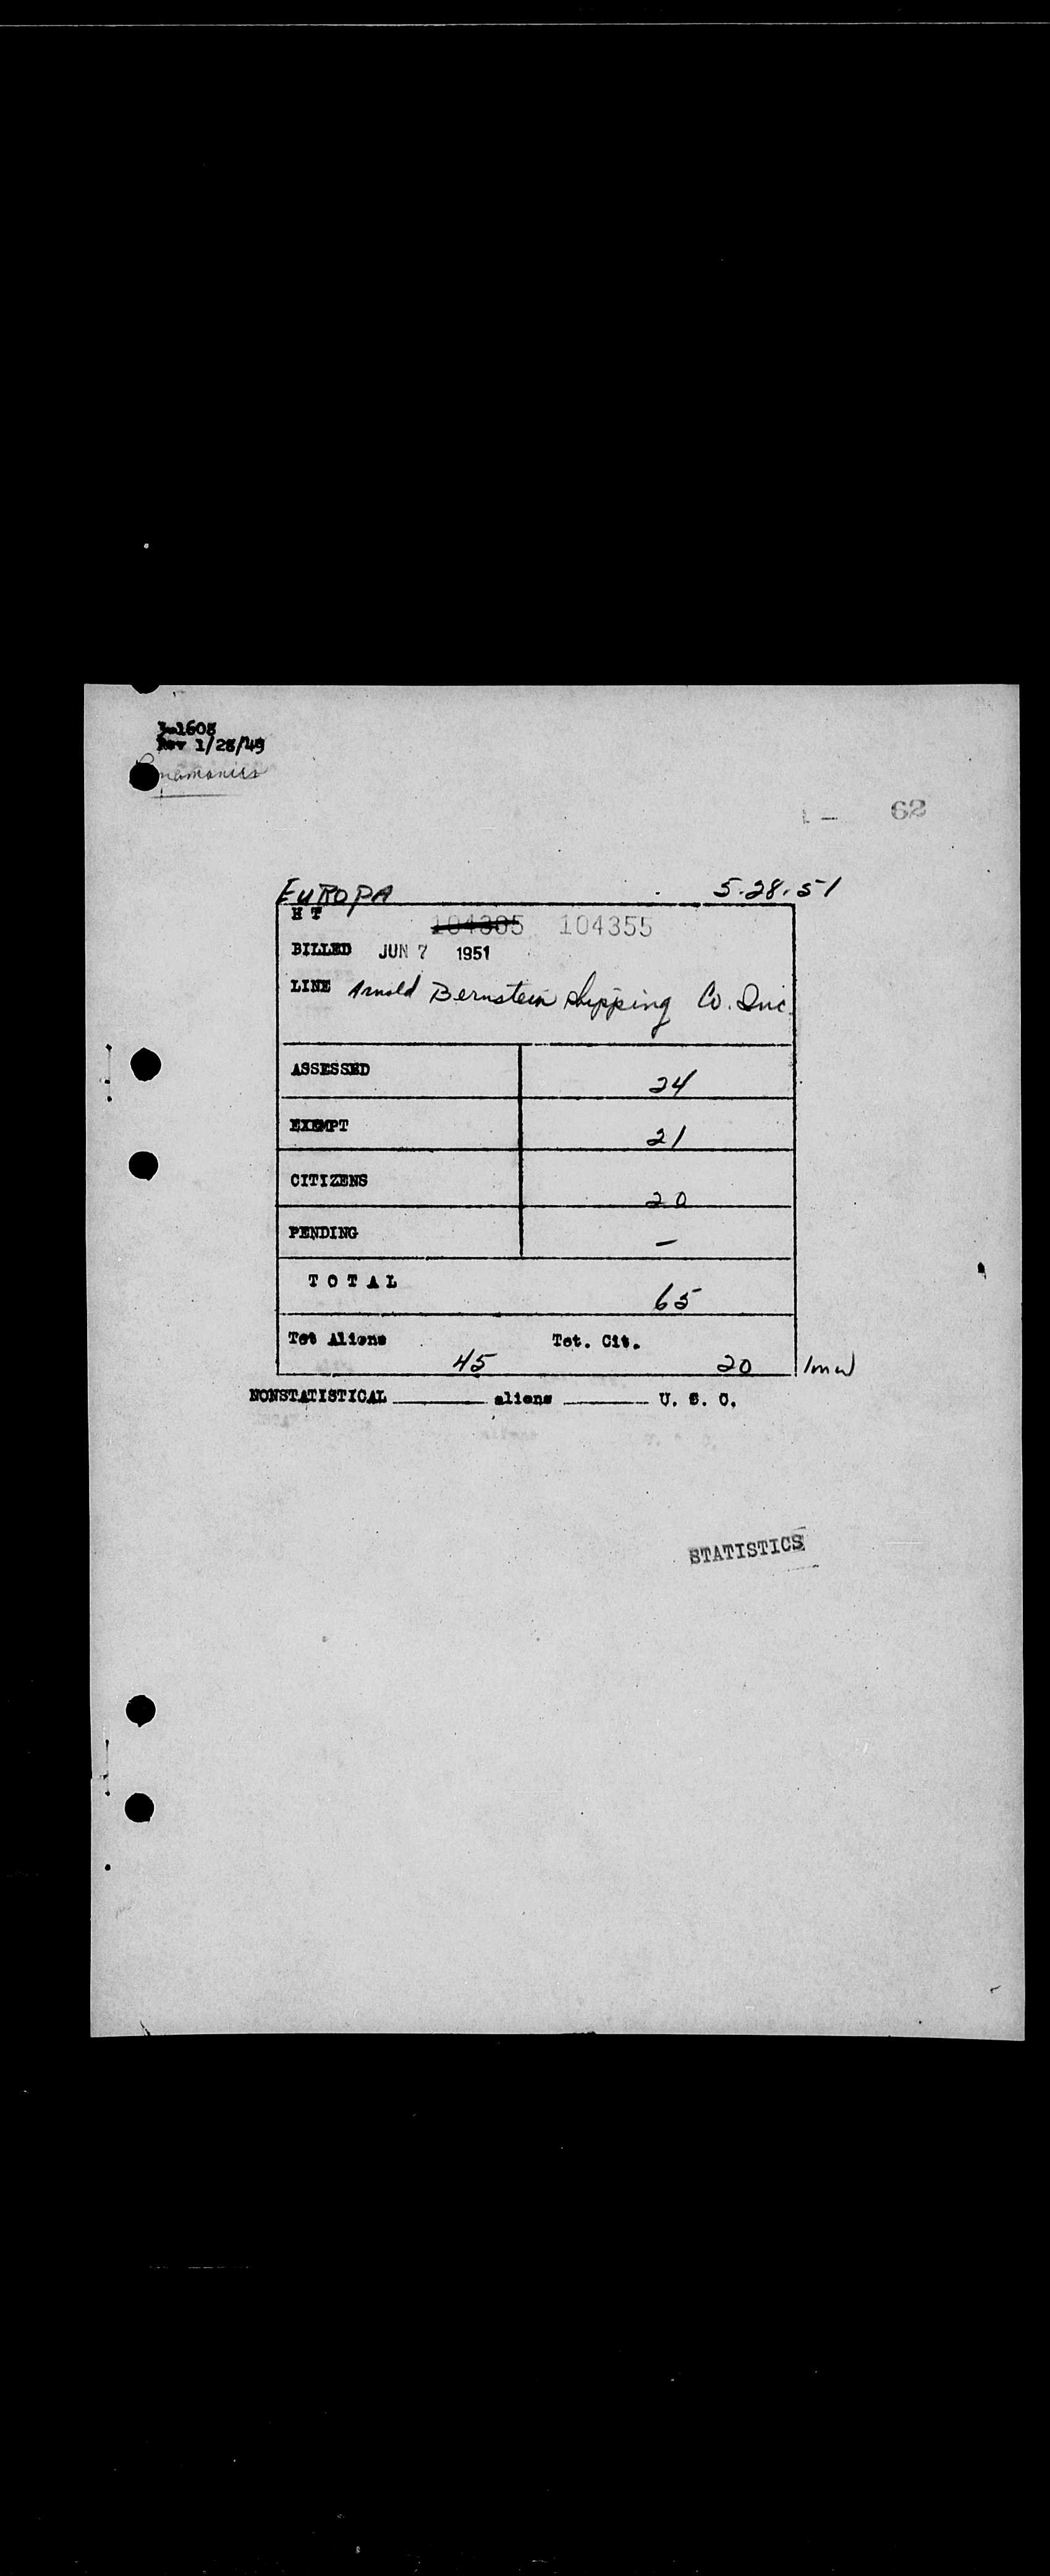 3-1608
Rev 1/28/49
62
EUROPA 5-28-51
H T 104305 104355
BILLED JUN 7 1951
LINE Arnold Bernstein Shipping Co. Inc.
ASSESSED 24
EXEMPT 21
CITIZENS 20
PENDING —
TOTAL 65
Tot Aliens 45 Tot. Cit. 20
NONSTATISTICAL ______ aliens ______ U. S. C.
STATISTICS